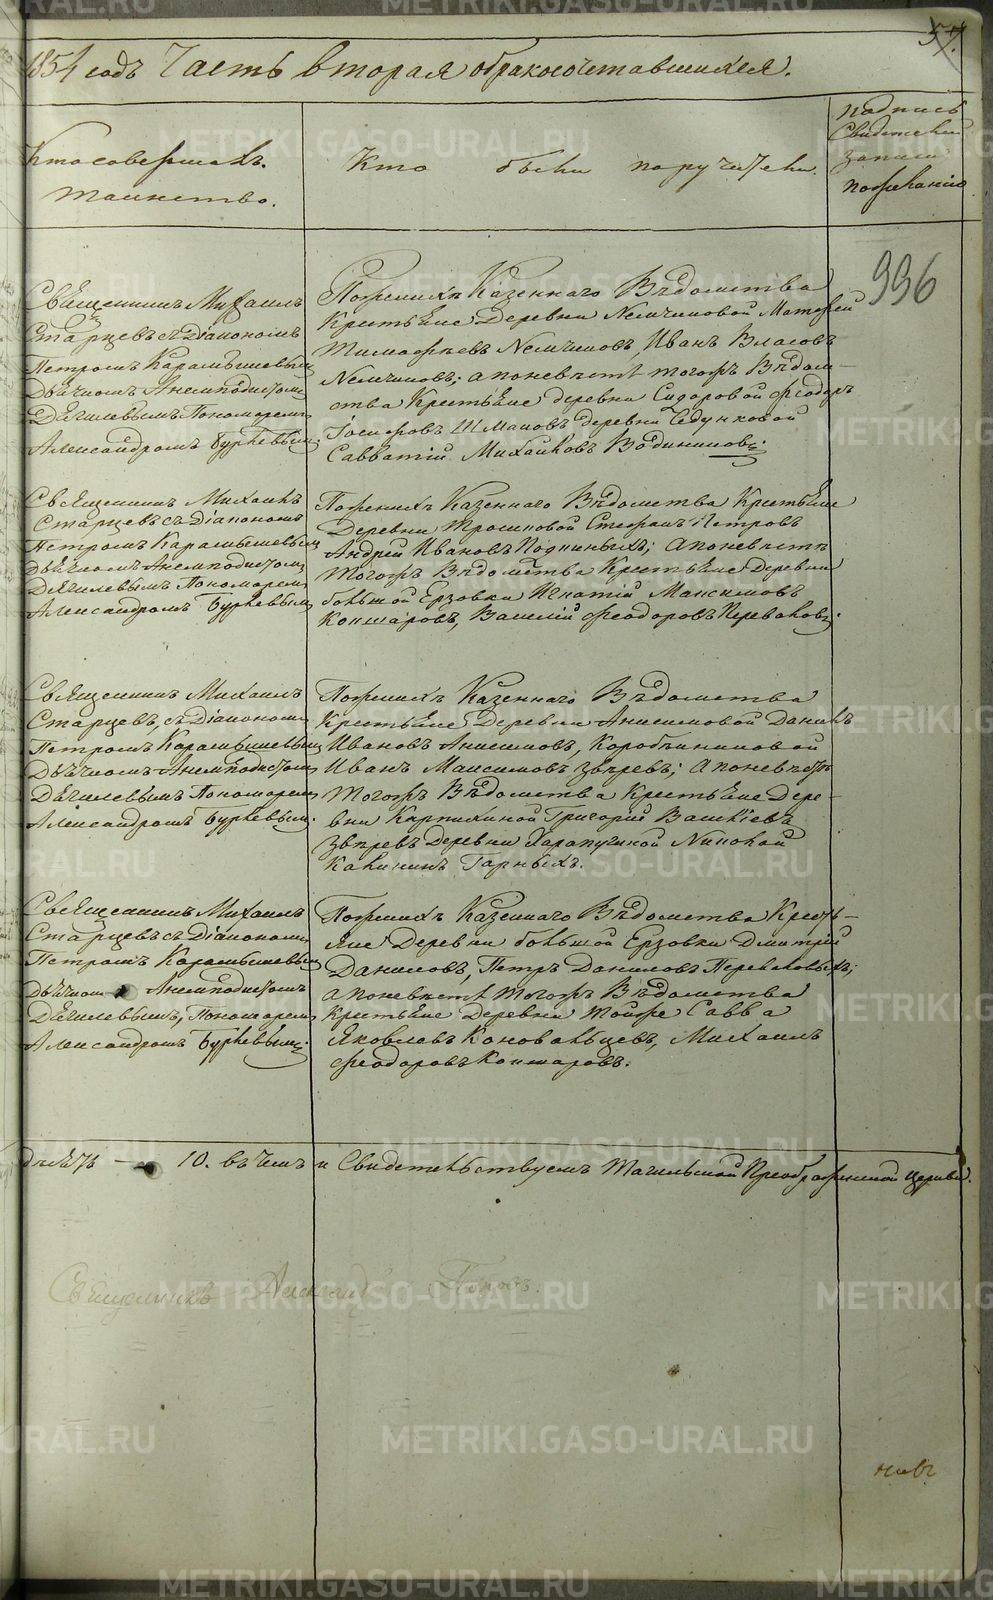 57.
1854 годъ Часть вторая о бракосочетавшихся.
Кто совершалъ
таинство.
Кто были поручители.
подпись
свидетелей
записи
по желанію
996
Священникъ Михаилъ
Старцевъ съ Діакономъ
Петромъ Карамышевымъ
Дьячкомъ Анемподистомъ
Дягилевымъ Пономаремъ
Александромъ Буркевымъ.
По женихѣ Казеннаго Вѣдомства
Крестьяне Деревни Немчиновой Матфей
Тимофѣевъ Немчиновъ, Иванъ Власовъ
Немчиновъ; а по невѣстѣ тогожъ Вѣдом-
ства Крестьяне деревни Сидоровой Феодоръ
Шмаковъ деревни
Савватій Михайловъ
Священникъ Михаилъ
Старцевъ съ Діакономъ
Петромъ Карамышевымъ
Дьячкомъ Анемподистомъ
Дягилевымъ Пономаремъ
Александромъ Буркевымъ
По женихѣ Казеннаго Вѣдомства Крестьяне
Деревни Трошковой Стефанъ Петровъ
Андрей Ивановъ а по невѣстѣ
тогожъ Вѣдомства Крестьяне Деревни
большой Ерзовки Игнатій Максимовъ
Кокшаровъ, Василій Феодоровъ Переваловъ.
Священникъ Михаилъ
Старцевъ, съ Діакономъ
Петромъ Карамышевымъ
Дьячкомъ Анемподистомъ
Дягилевымъ Пономаремъ
Александромъ Буркевымъ.
По женихѣ Казеннаго Вѣдомства
Крестьяне Деревни Анисимовой Данилъ
Ивановъ Анисимовъ, Коробейниковой
Иванъ Максимовъ Звѣревъ; а по невѣстѣ
тогожъ Вѣдомства Крестьяне Дере-
вни Карпихиной Григорій Васильевъ
Звѣревъ деревни Харапугиной Николай
Калининъ Горныхъ.
Священникъ Михаилъ
Старцевъ съ Діакономъ
Петромъ Карамышевымъ
Дьячкомъ Анемподистомъ
Дягилевымъ, Пономаремъ
Александромъ Буркевымъ.
По женихѣ Казеннаго Вѣдомства Кресть-
яне Деревни большой Ерзовки Дмитрій
Даниловъ, Петръ Даниловъ Переваловыхъ;
а по невѣстѣ тогожъ Вѣдомства
Крестьяне Деревни тойже Савва
Яковлевъ Коновальцевъ, Михаилъ
Феодоровъ Кокшаровъ.
десять — 10. въ чемъ и Свидетельствуемъ Тагильской Преображенской церкви.
Священникъ Александръ Поповъ.
METRIKI.GASO-URAL.RU